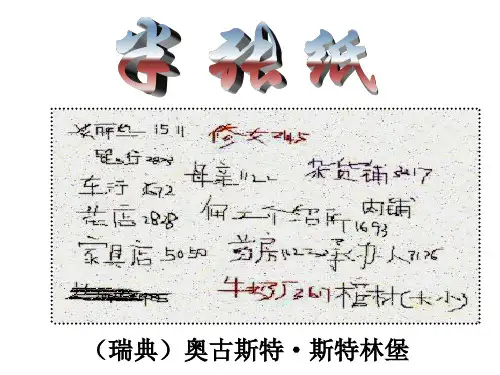 半张纸
爱丽丝 1511 修女 245
银行 2828 母亲 1122 杂货铺 3217
车行 3672 肉铺
花店 2828 佣工介绍所 1693
家具店 5050 药房 1122 承办人 3126
牛奶厂 2617 棺材(大小)
(瑞典)奥古斯特·斯特林堡